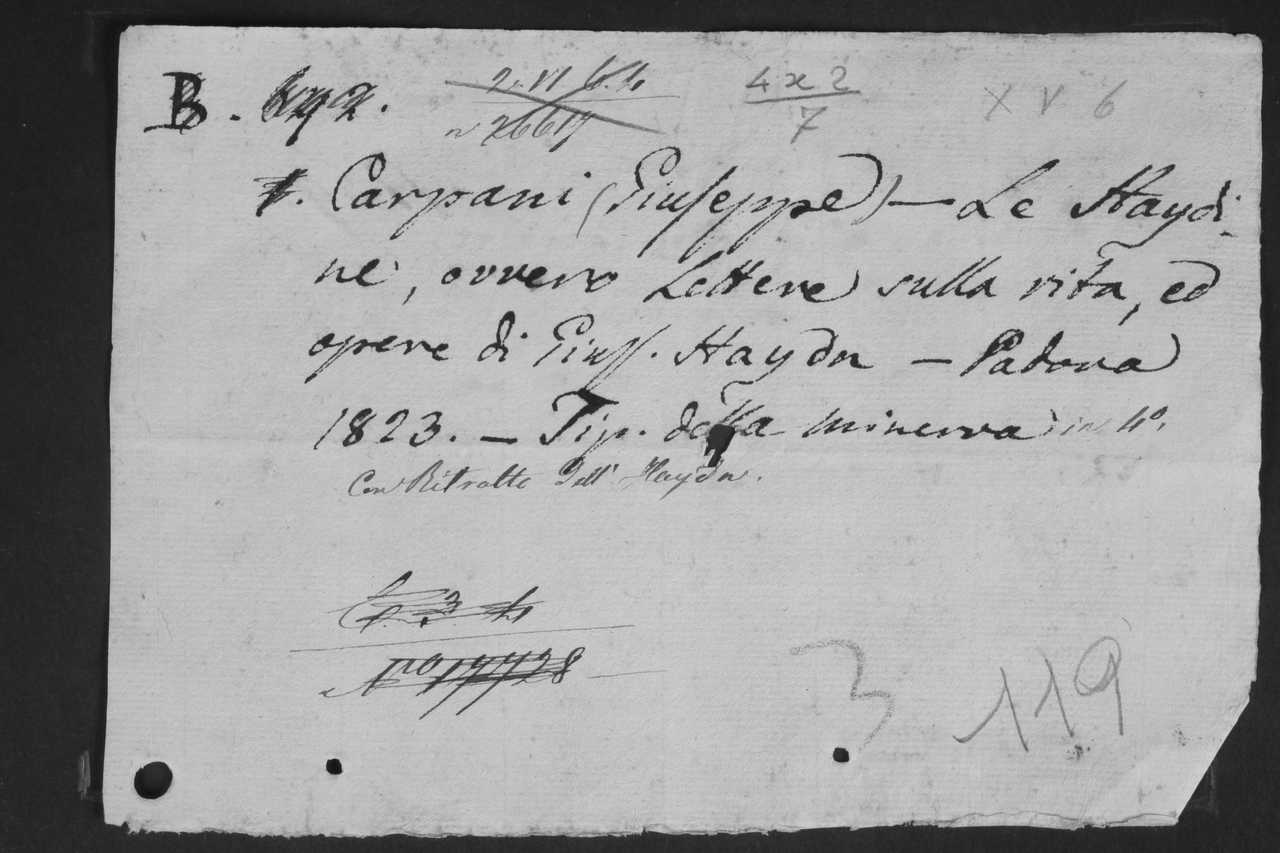 B.
4 x 2
7
X V 6
Carpani (Giuseppe) — Le Haydi-
ne, ovvero Lettere sulla vita, ed
opere di Gius. Haydn — Padova
1823. — Tip. della minerva in 4º.
Con Ritratto dell' Haydn.
3 119